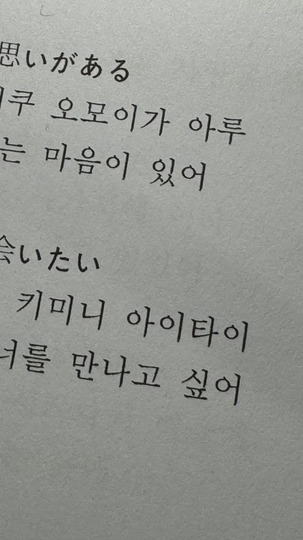 思いがある
쿠 오모이가 아루
는 마음이 있어
会いたい
키미니 아이타이
너를 만나고 싶어